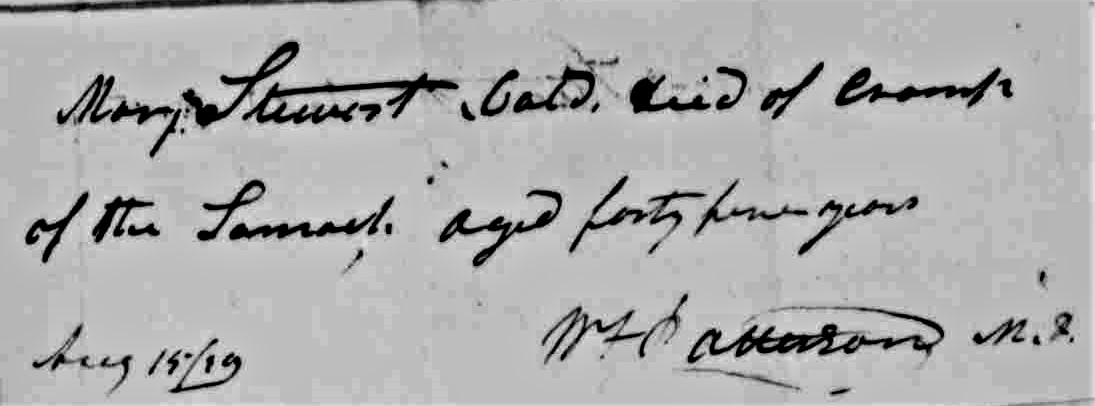 Mary Stewert Cold. died of Cramp
of the Stomach, aged forty years
Aug 15/19
Wm Patterson M.D.